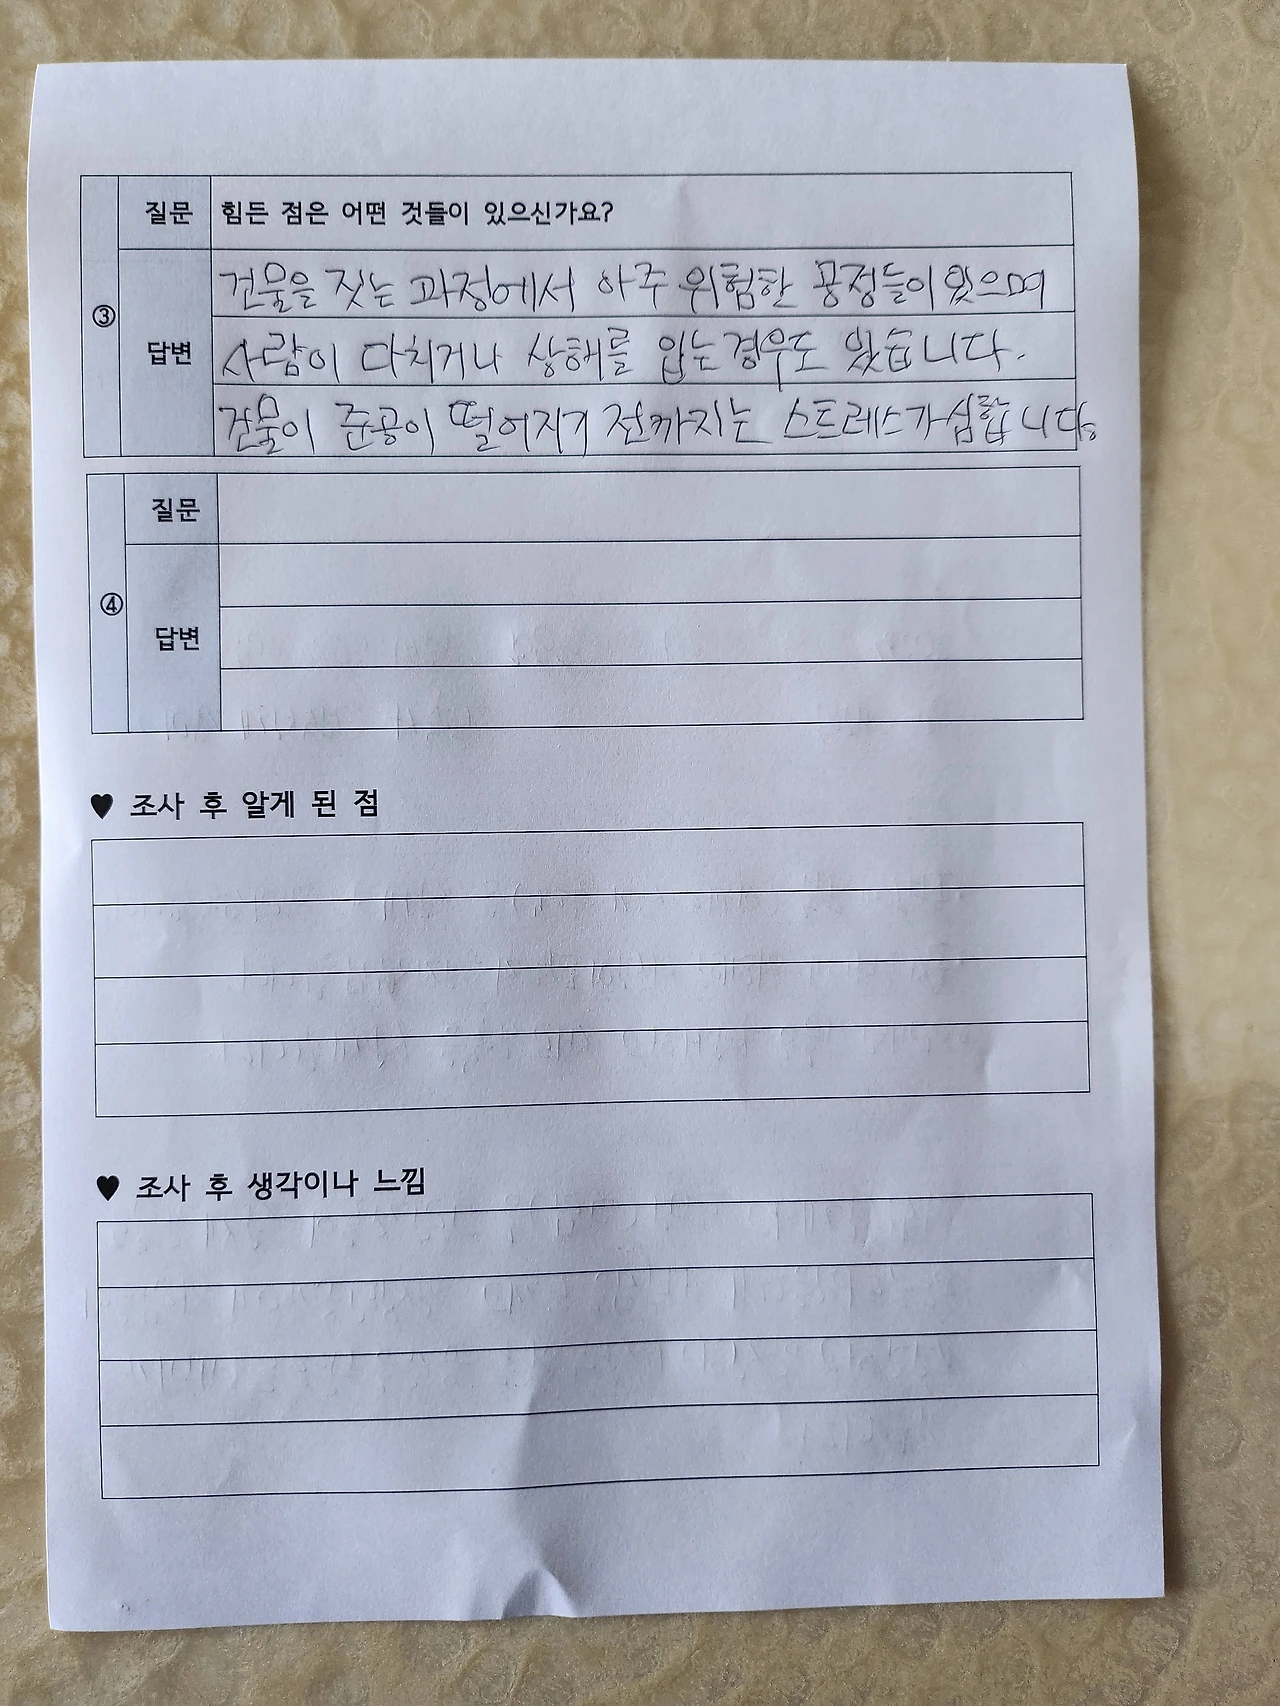 ③
질문 힘든 점은 어떤 것들이 있으신가요?
답변
건물을 짓는 과정에서 아주 위험한 공정들이 있으며
사람이 다치거나 상해를 입는경우도 있습니다.
건물이 준공이 떨어지기 전까지는 스트레스가 심합니다.
④
질문
답변
♥ 조사 후 알게 된 점
♥ 조사 후 생각이나 느낌